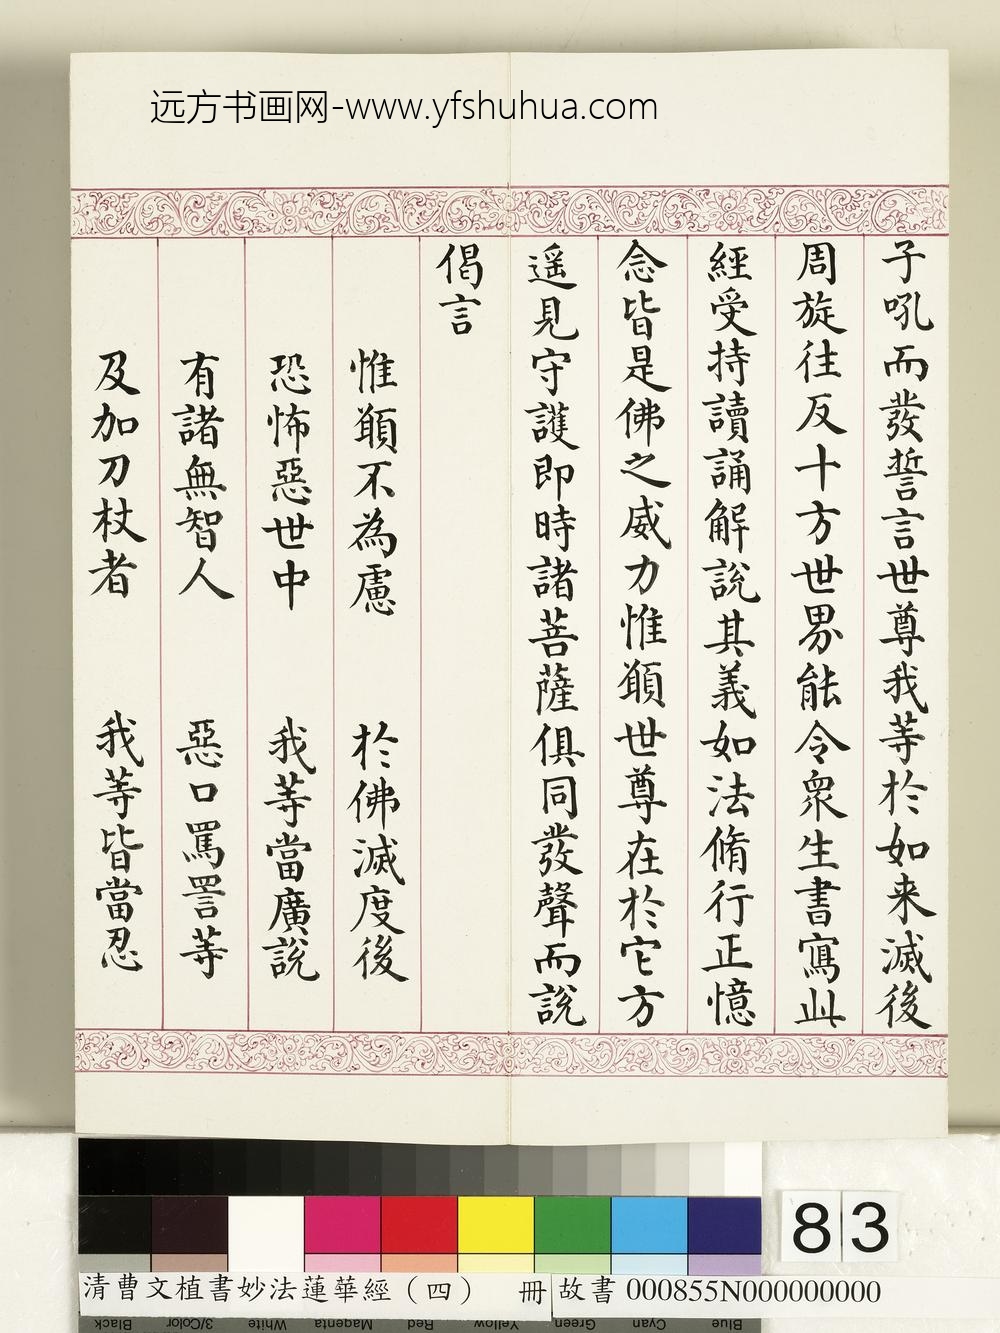 远方书画网-www.yfshuhua.com
子吼而發誓言世尊我等於如来滅後
周旋往反十方世界能令衆生書寫此
經受持讀誦解說其義如法脩行正憶
念皆是佛之威力惟願世尊在於它方
遥見守護即時諸菩薩俱同發聲而說
偈言
惟願不為慮 於佛滅度後
恐怖惡世中 我等當廣說
有諸無智人 惡口罵詈等
及加刀杖者 我等皆當忍
83
清曹文植書妙法蓮華經(四) 冊 故書 000855N000000000
Black 3/Color White Magenta Red Yellow Green Cyan Blue